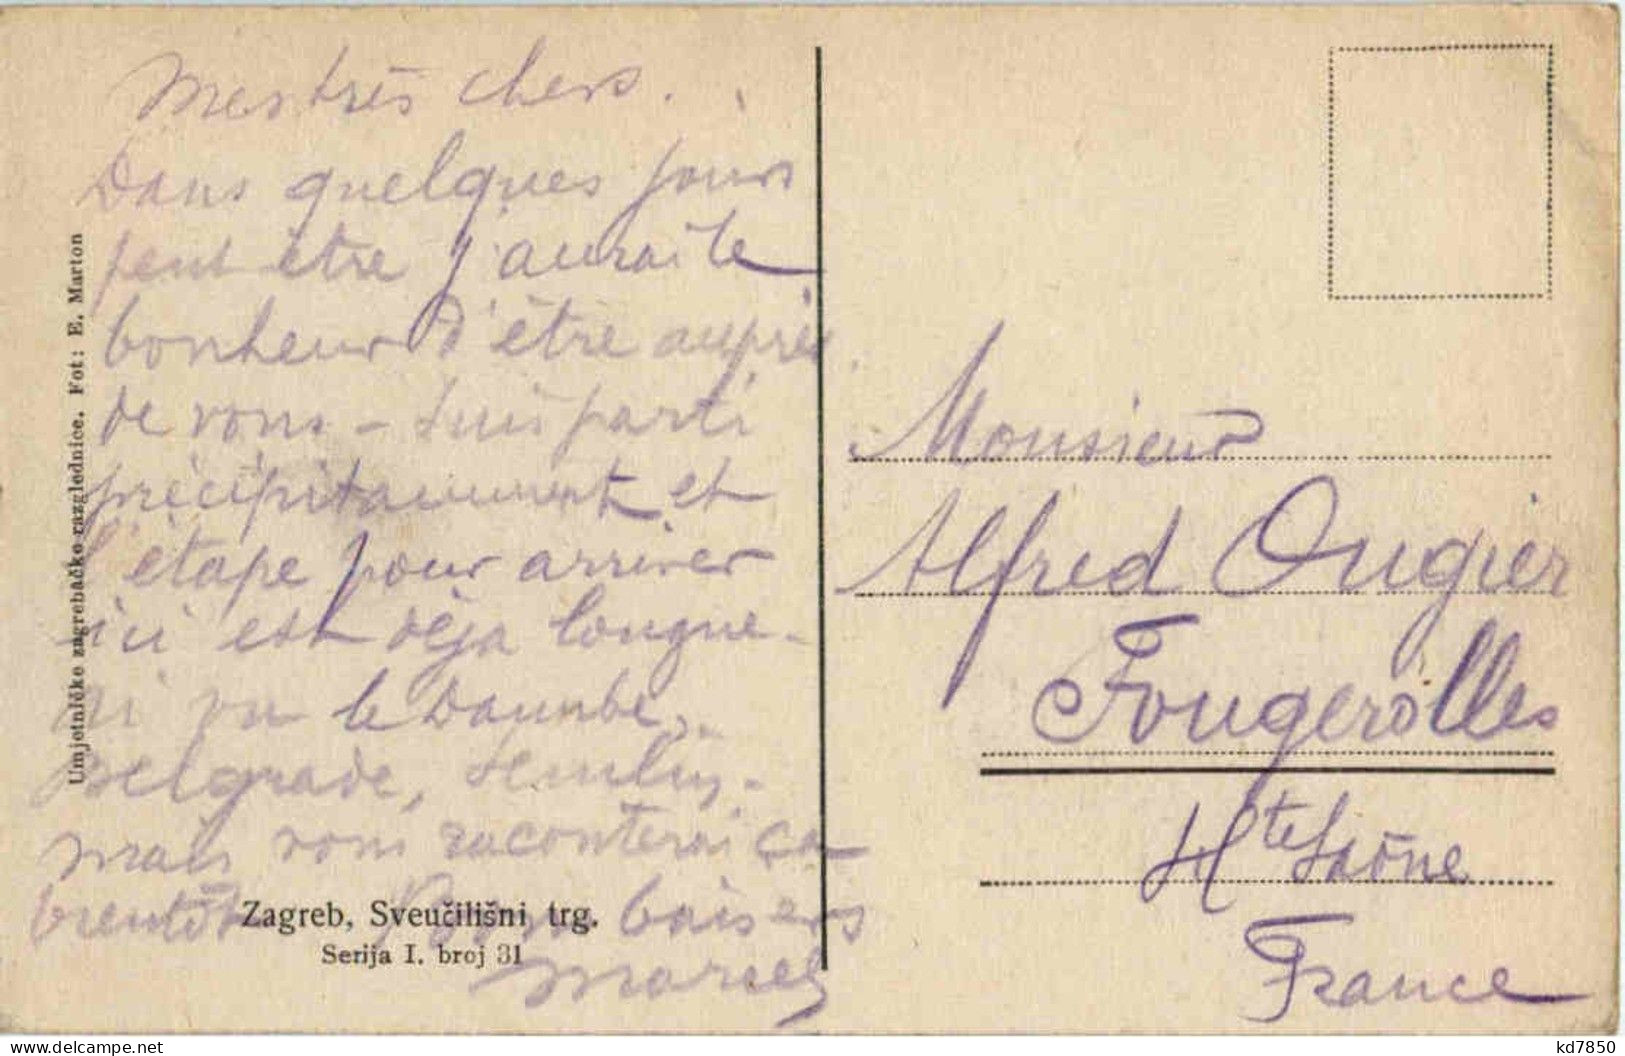 Mes très chers.
Dans quelques jours
peut être j'aurai le
bonheur d'être auprès
de vous - suis parti
précipitamment et
l'étape pour arriver
ici est déjà longue -
Ai vu le Danube,
Belgrade, Semlin -
mais vous raconterai ça
bientôt Bons baisers
Marcel
Umjetničke zagrebačke razglednice. Fot: E. Marton
Zagreb, Sveučilišni trg.
Serija I. broj 31
Monsieur
Alfred Ougier
Fougerolles
Hte Saône
France
kd7850